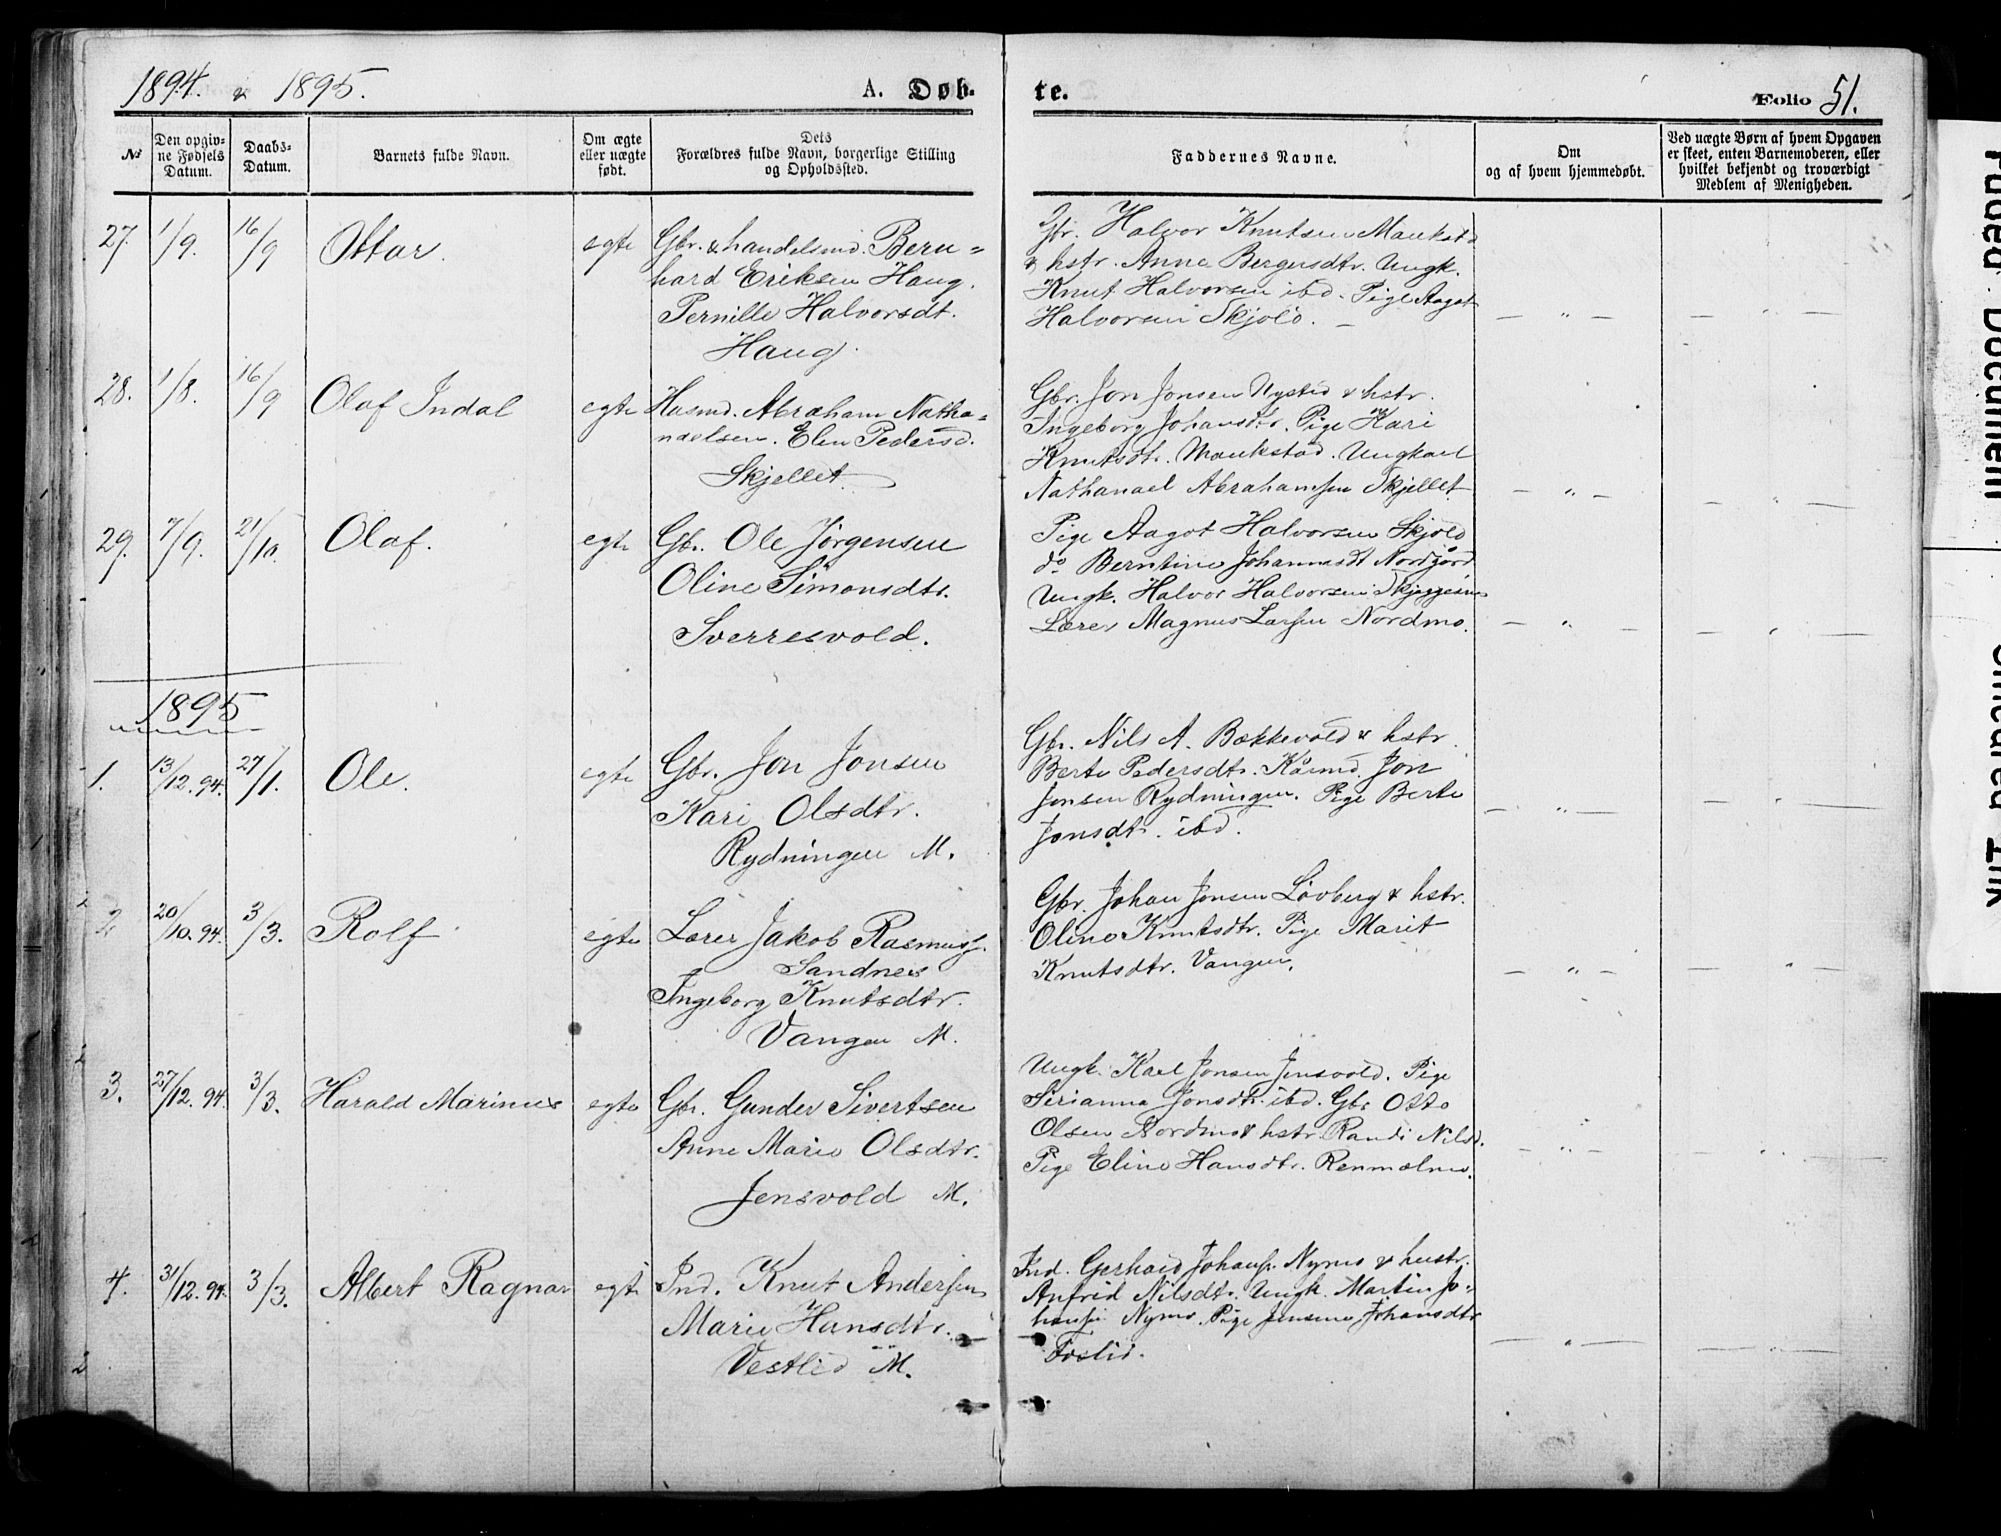 1894. & 1895.
A. Døb-
te.
Folio 51.
№
Den opgiv-
ne Fødsels
Datum.
Daabs-
Datum.
Barnets fulde Navn.
Om ægte
eller uægte
født.
Dets
Forældres fulde Navn, borgerlige Stilling
og Opholdssted.
Faddernes Navne.
Om
og af hvem hjemmedøbt.
Ved uægte Børn af hvem Opgaven
er skeet, enten Barnemoderen, eller
hvilket bekjendt og troværdigt
Medlem af Menigheden.
27. 1/9. 16/9 Ottar. egte
Gbr. & handelsmd. Bern-
hard Eriksen Haug.
Pernille Halvorsdt.
Haug.
Gbr. Halvor Knutsen Maukstd
& hstr. Anne Bergersdtr. Ungk.
Knut Halvorsen ibd. Pige Aagot
Halvorsen Skjold. — — " — — " —
28. 1/8. 16/9 Olaf Indal egte
Husmd. Abraham Natha-
naelsen. Elen Pedersd.
Skjellet.
Gbr. Jon Jonsen Nystid & hstr.
Ingeborg Johansdtr. Pige Kari
Knutsdtr. Maukstad. Ungkarl
Nathanael Abrahamsen Skjellet — " — — " —
29. 7/9. 21/10. Olaf. egte
Gbr. Ole Jørgensen
Oline Simonsdtr.
Sverresvold.
Pige Aagot Halvorsen Skjold
do Berntine Johannesdt Nordfjord
Ungk. Halvor Halvorsen
Lærer Magnus Larsen Nordmo. — " — — " —
1895
1. 13/12.94. 27/1. Ole. egte
Gbr. Jon Jonsen
Kari Olsdtr.
Rydningen M.
Gbr. Nils A. Bækkevold & hstr.
Berte Pedersdtr. Kårmd. Jon
Jonsen Rydningen. Pige Berte
Jonsdtr. ibd. — " — — " —
2 20/10.94. 3/3. Rolf egte
Lærer Jakob Rasmuss.
Sandnes
Ingeborg Knutsdtr.
Vangen M.
Gbr. Johan Jonsen Løvberg & hstr.
Oline Knutsdtr. Pige Marit
Knutsdtr. Vangen. — " — — " —
3. 27/12.94. 3/3. Harald Marinus egte
Gbr. Gunder Sivertsen
Anne Marie Olsdtr.
Jensvold M.
Ungk. Karl Jonsen Jensvold. Pige
Sirianna Jonsdtr. ibd. Gbr Otto
Olsen Nordmo & hstr. Randi Nilsd.
Pige Eline Hansdtr. Renmælmo. — " — — " —
4. 31/12.94. 3/3. Albert Ragnar egte
Ind. Knut Andersen
Marie Hansdtr.
Vestlid M.
Ind. Gerhard Johans. Nymo & hustr.
Anfrid Nilsdtr. Ungk. Martin Jo-
hansen Nymo. Pige Jensine Johansdtr
Foslid. — " — — " —
Faded Document
Smeared Ink